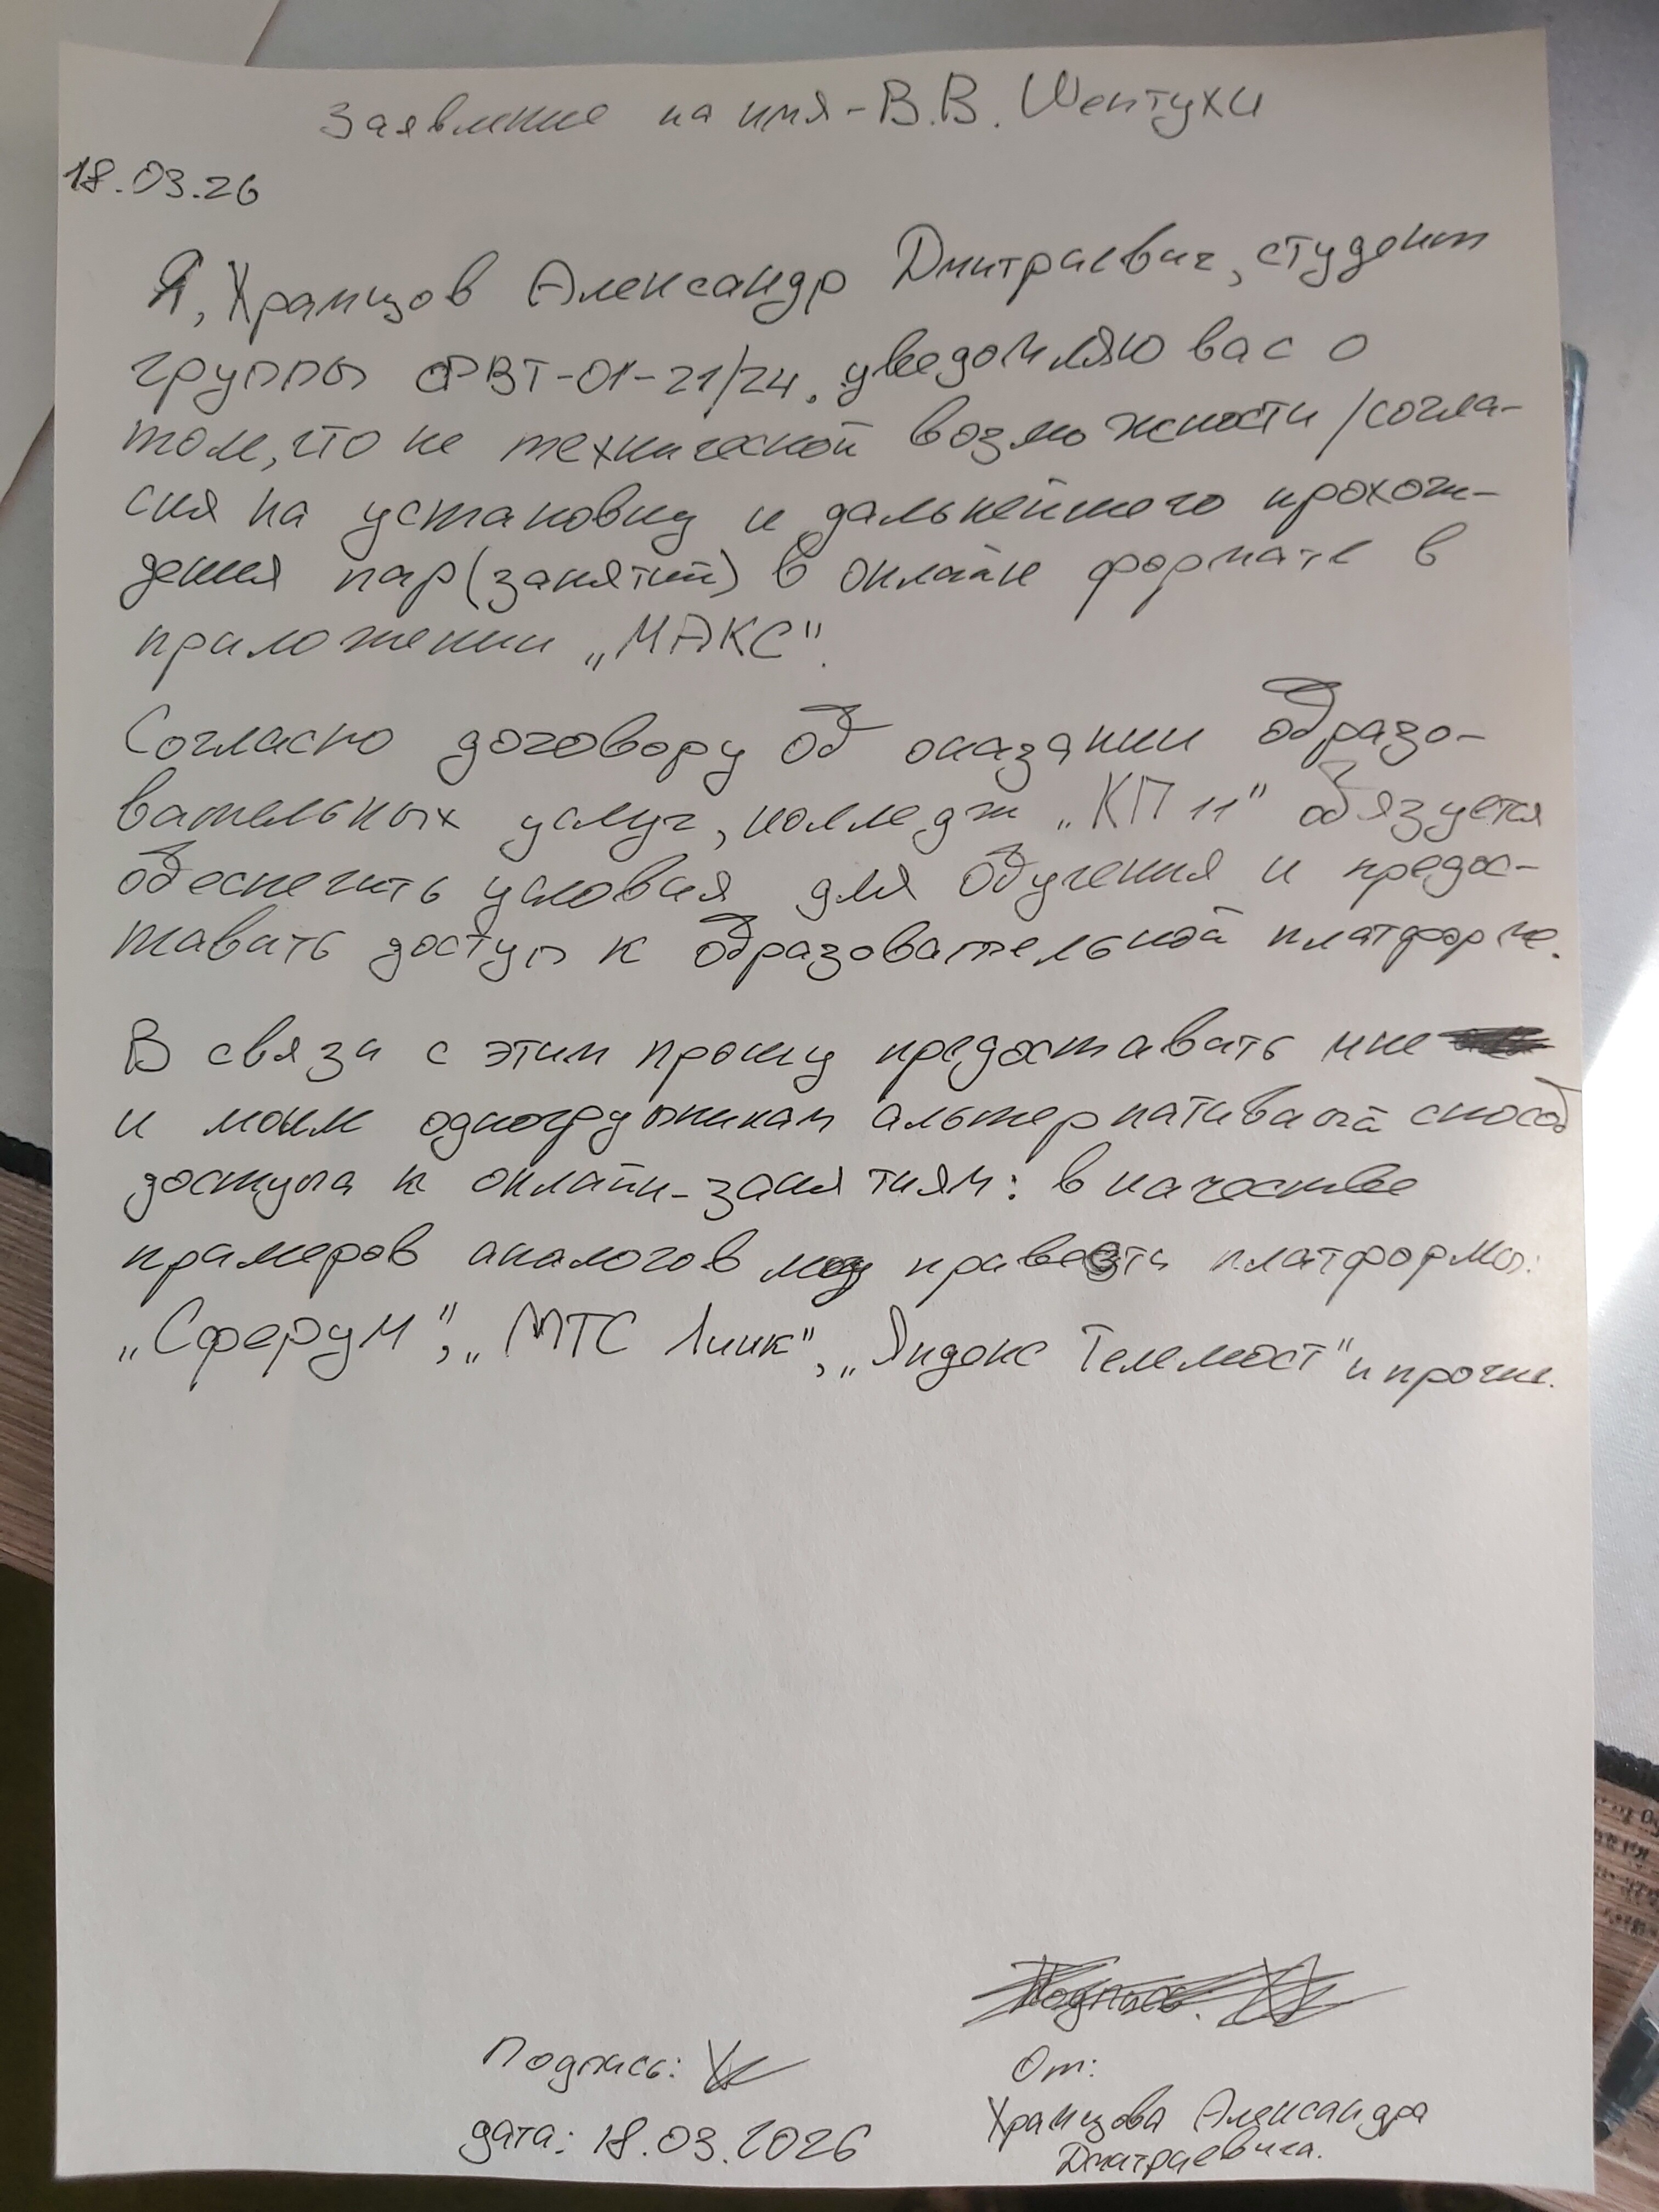 Заявление на имя - В.В. Шептухи
18.03.26
Я, Храмцов Александр Дмитраевич, студент
группы ФВТ-01-21/24, уведомляю вас о
том, что не технической возможности /согла-
сия на установку и дальнейшего прохож-
дения пар (занятий) в онлайн формате в
приложении „МАКС".
Согласно договору об оказании образо-
вательных услуг, колледж „КП 11" обязуется
обеспечить условия для обучения и предос-
тавить доступ к образовательной платформе.
В связи с этим прошу предоставить мне
и моим одногруппникам альтернативный способ
доступа к онлайн-занятиям: в качестве
примеров аналогов могу привести платформы:
„Сферум", „МТС Линк", „Яндекс Телемост" и прочие.
Подпись:
От:
Подпись:
Храмцова Александра
дата: 18.03.2026
Дмитраевича.